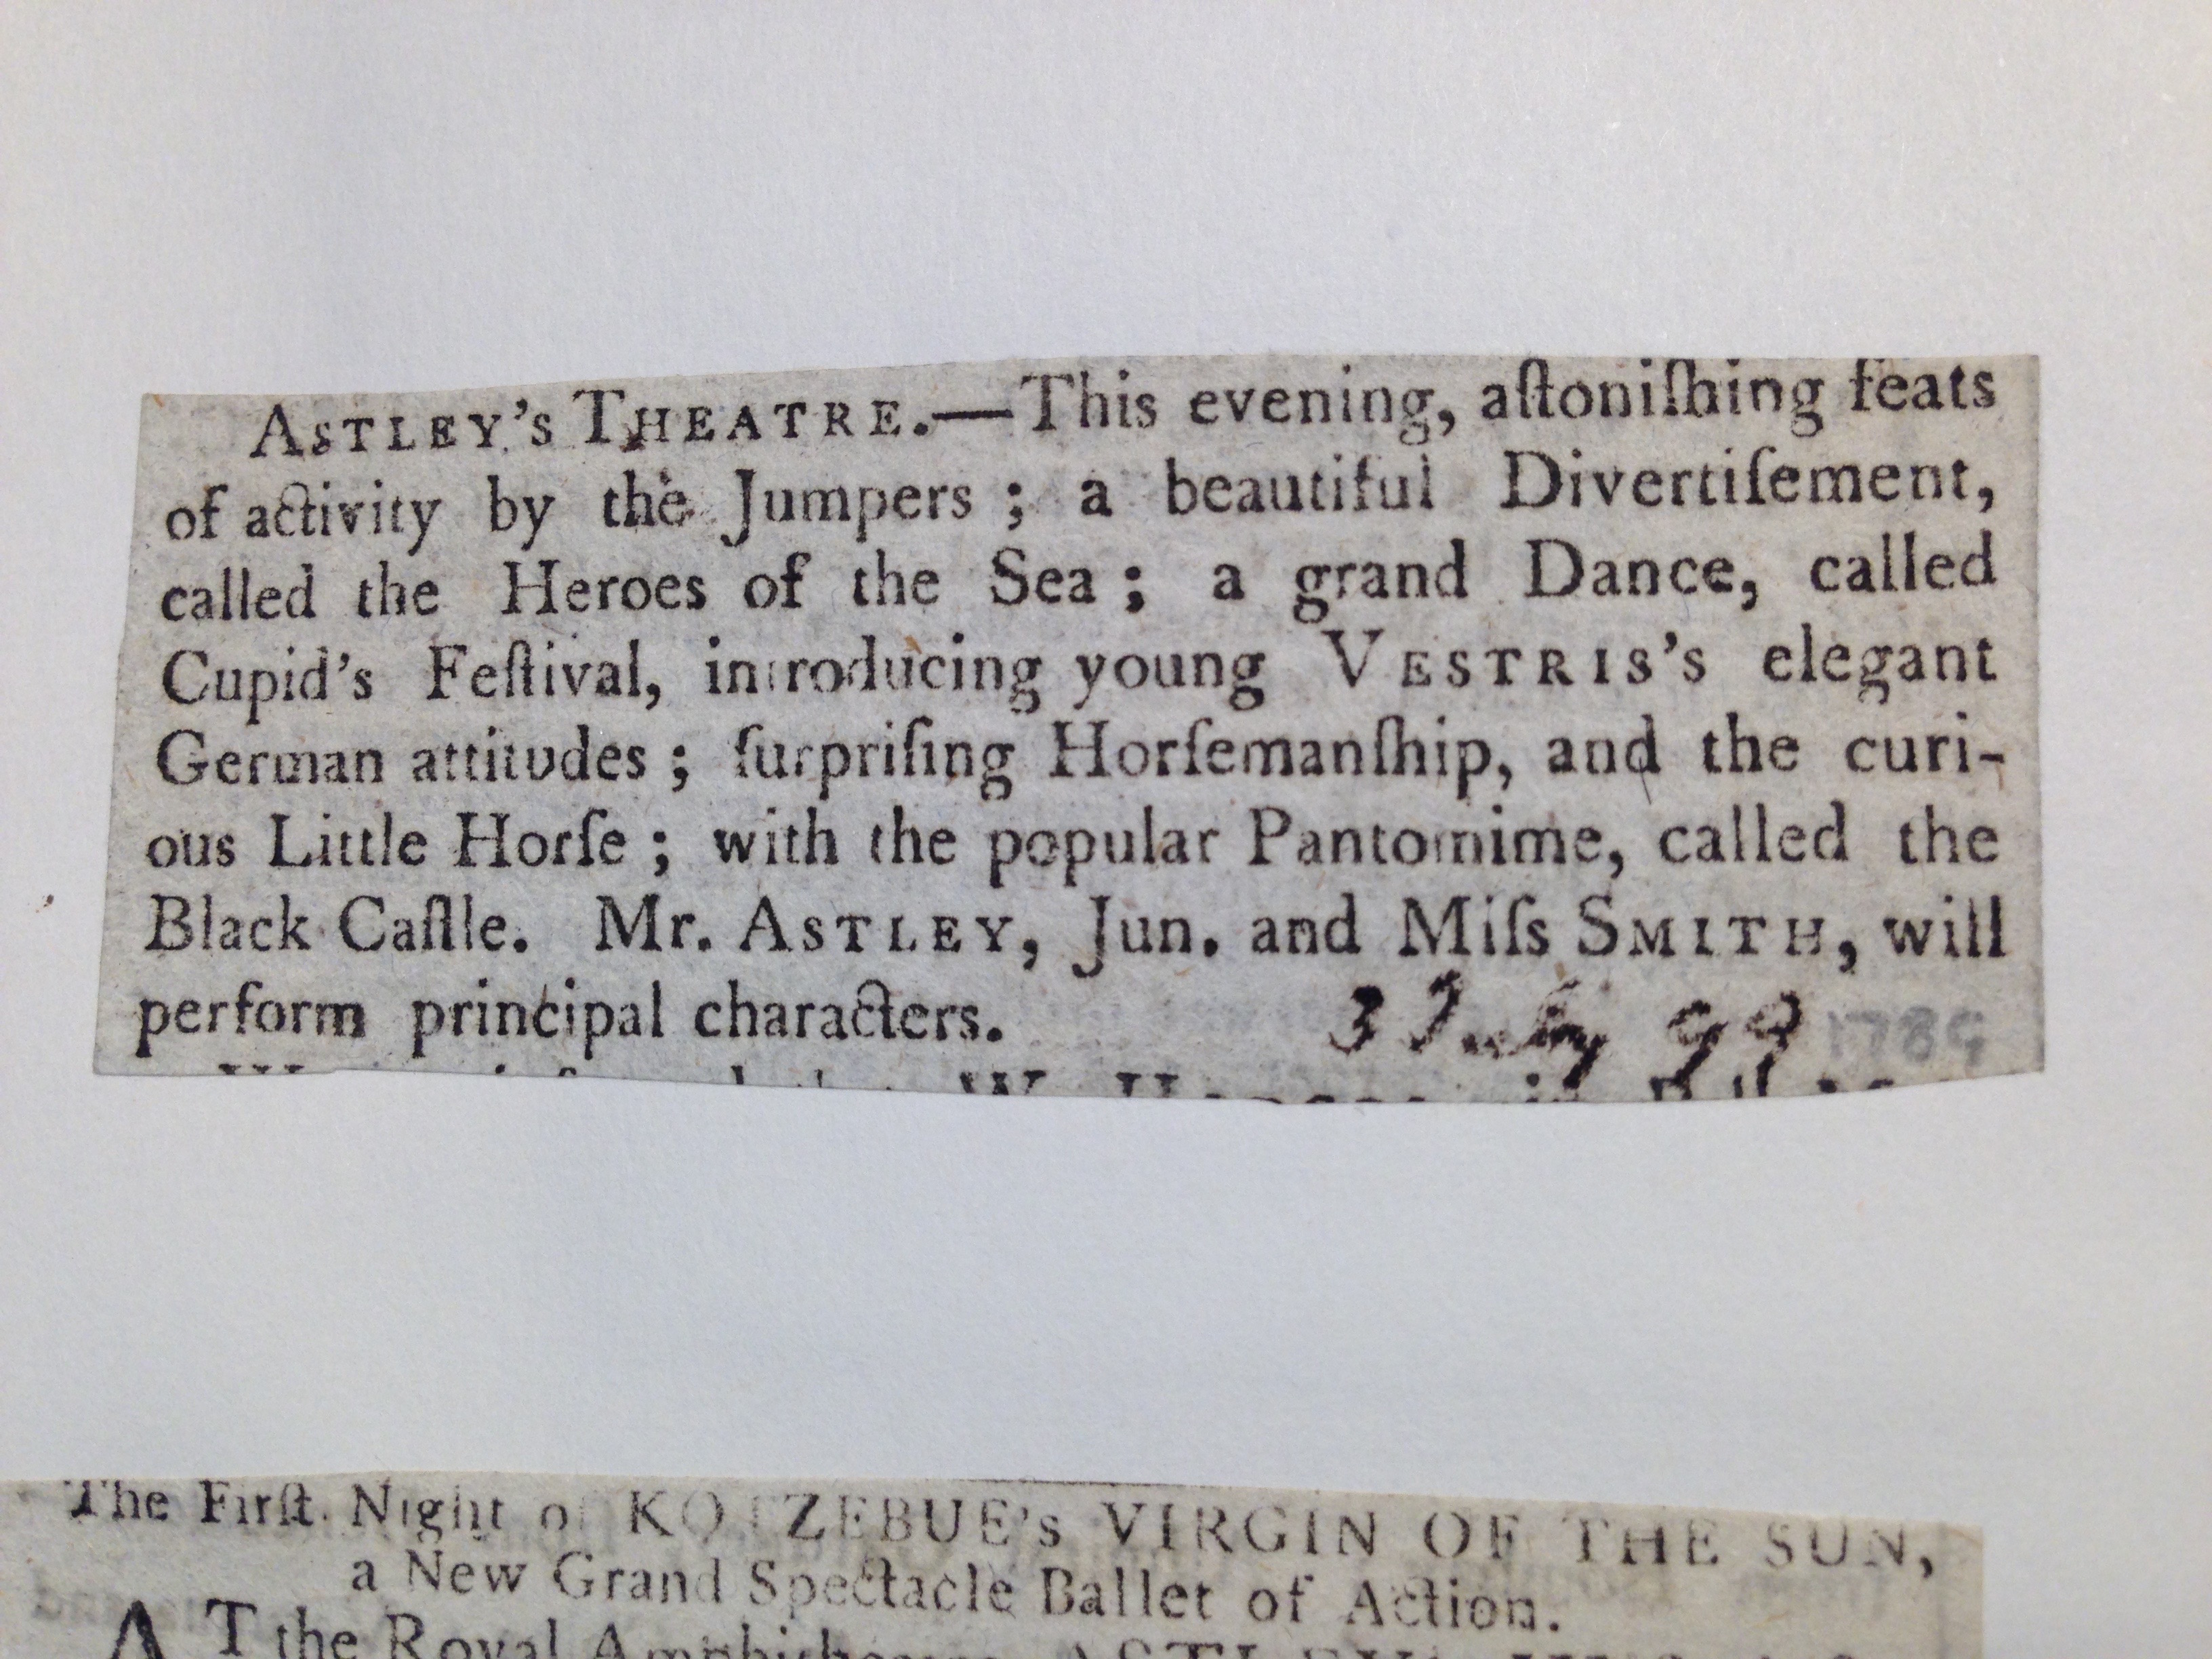 ASTLEY'S THEATRE.—This evening, aſtoniſhing feats
of activity by the Jumpers ; a beautiful Divertiſement,
called the Heroes of the Sea ; a grand Dance, called
Cupid's Feſtival, introducing young VESTRIS'S elegant
German attitudes ; ſurpriſing Horſemanſhip, and the curi-
ous Little Horſe ; with the popular Pantomime, called the
Black Caſtle. Mr. ASTLEY, Jun. and Miſs SMITH, will
perform principal characters.
3 July 99 1789
The Firſt Night of KOTZEBUE's VIRGIN OF THE SUN,
a New Grand Spectacle Ballet of Action.
AT the Royal